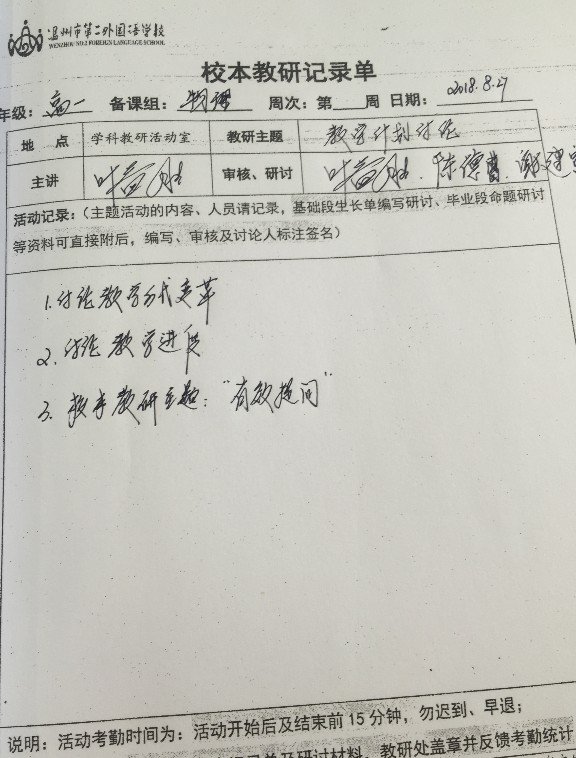 温州市第二外国语学校
WENZHOU NO.2 FOREIGN LANGUAGE SCHOOL
校本教研记录单
年级：高一 备课组：物理 周次：第 周 日期：2018.8.27
地 点 学科教研活动室 教研主题 教学计划讨论
主讲 审核、研讨
活动记录：（主题活动的内容、人员请记录，基础段生长单编写研讨、毕业段命题研讨
等资料可直接附后，编写、审核及讨论人标注签名）
1.讨论教学方式变革
2.讨论教学进度
3.校本教研主题："有效提问"
说明：活动考勤时间为：活动开始后及结束前15分钟，勿迟到、早退；
及研讨材料，教研处盖章并反馈考勤统计